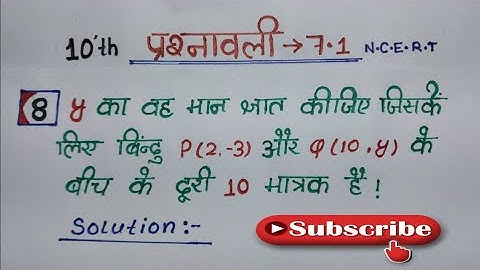 10'th प्रश्नावली → 7.1 N.C.E.R.T
8 y का वह मान ज्ञात कीजिए जिसके
लिए बिंन्दु P(2,-3) और Q(10,y) के
बीच के दूरी 10 मात्रक हैं !
Solution:-
Subscribe